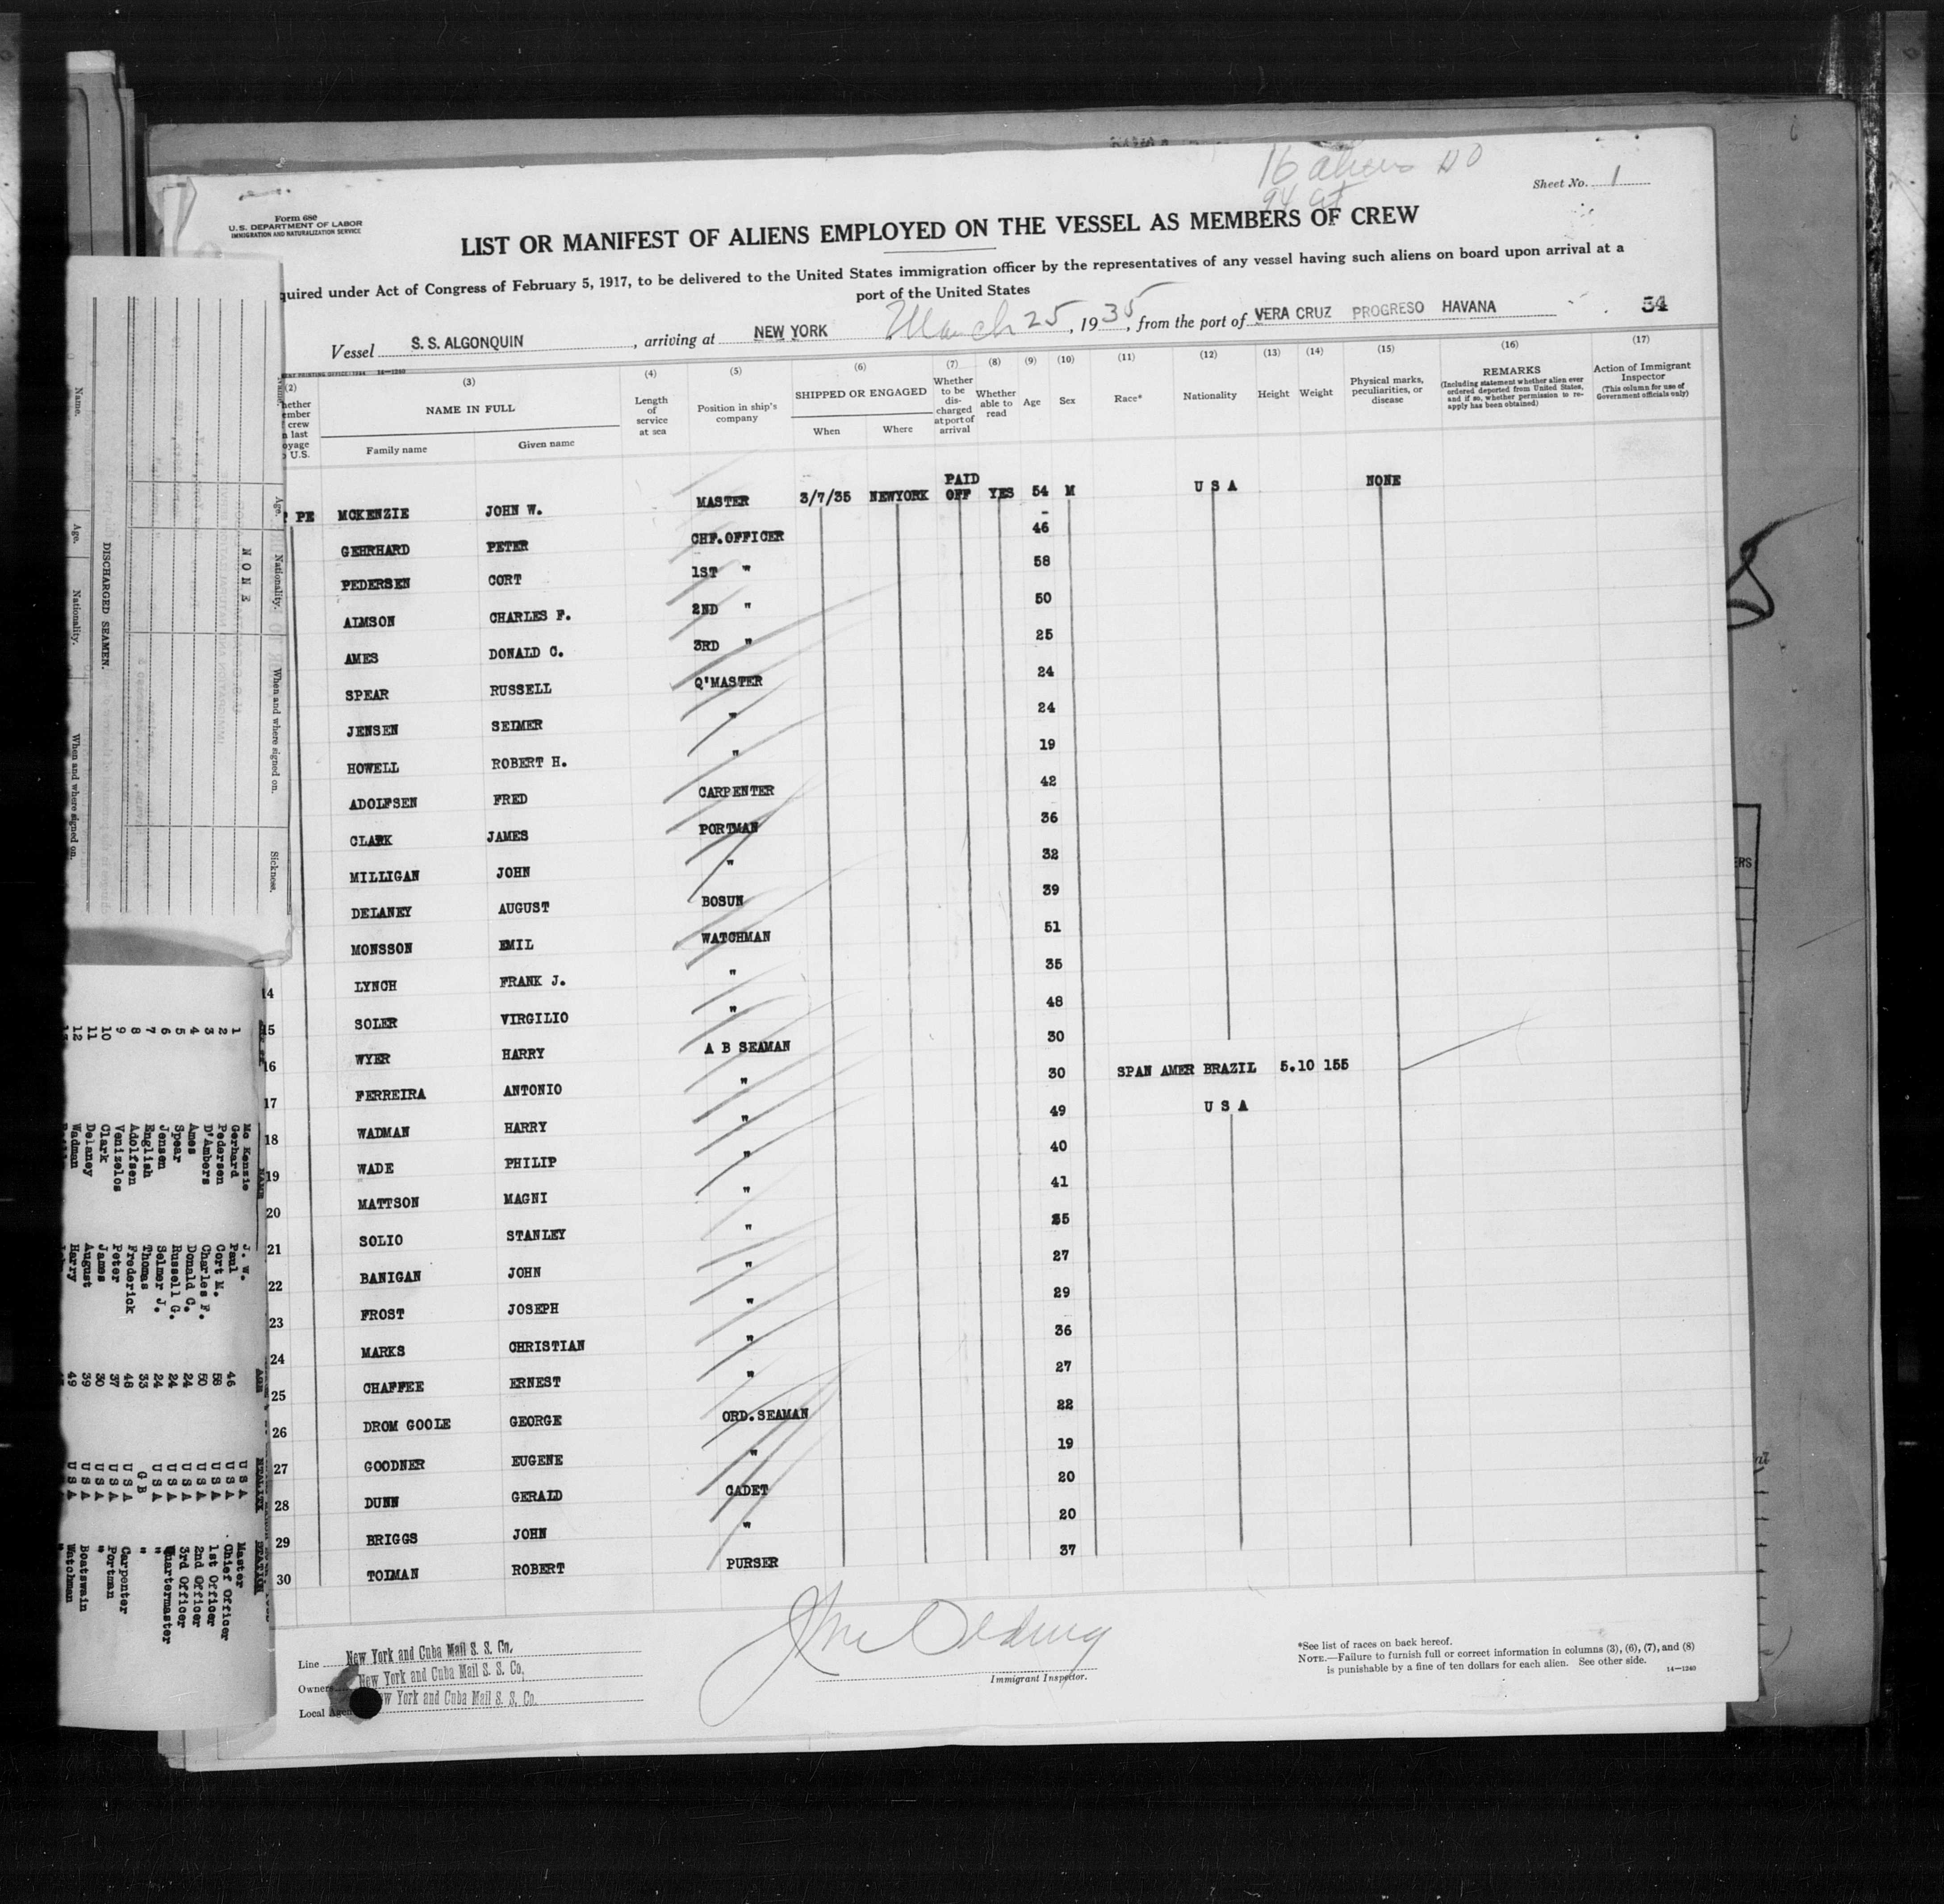 16 aliens
Sheet No. 1
Form 680
U.S. DEPARTMENT OF LABOR
IMMIGRATION AND NATURALIZATION SERVICE
LIST OR MANIFEST OF ALIENS EMPLOYED ON THE VESSEL AS MEMBERS OF CREW
quired under Act of Congress of February 5, 1917, to be delivered to the United States immigration officer by the representatives of any vessel having such aliens on board upon arrival at a
port of the United States
Vessel S. S. ALGONQUIN, arriving at NEW YORK March 25, 1935, from the port of VERA CRUZ PROGRESO HAVANA 54
(2) (3) (4) (5) (6) (7) (8) (9) (10) (11) (12) (13) (14) (15) (16) (17)
NAME IN FULL
Family name Given name
Length of service at sea
Position in ship's company
SHIPPED OR ENGAGED
When Where
Whether to be discharged at port of arrival
Whether able to read
Age Sex Race* Nationality Height Weight
Physical marks, peculiarities, or disease
REMARKS
(Including statement whether alien ever ordered deported from United States, and if so, whether permission to reapply has been obtained)
Action of Immigrant Inspector
(This column for use of Government officials only)
PE MCKENZIE JOHN W. MASTER 3/7/35 NEWYORK PAID OFF YES 54 M U S A NONE
GEHRHARD PETER CHF.OFFICER 46
PEDERSEN CORT 1ST " 58
AIMSON CHARLES F. 2ND " 50
AMES DONALD C. 3RD " 25
SPEAR RUSSELL Q'MASTER 24
JENSEN SELMER " 24
HOWELL ROBERT H. " 19
ADOLFSEN FRED CARPENTER 42
CLARK JAMES PORTMAN 36
MILLIGAN JOHN " 32
DELANEY AUGUST BOSUN 39
MONSSON EMIL WATCHMAN 51
14 LYNCH FRANK J. " 35
15 SOLER VIRGILIO " 48
16 WYER HARRY A B SEAMAN 30
17 FERREIRA ANTONIO " 30 SPAN AMER BRAZIL 5.10 155
18 WADMAN HARRY " 49 U S A
19 WADE PHILIP " 40
20 MATTSON MAGNI " 41
21 SOLIO STANLEY " 35
22 BANIGAN JOHN " 27
23 FROST JOSEPH " 29
24 MARKS CHRISTIAN " 36
25 CHAFFEE ERNEST " 27
26 DROM GOOLE GEORGE ORD.SEAMAN 22
27 GOODNER EUGENE " 19
28 DUNN GERALD CADET 20
29 BRIGGS JOHN " 20
30 TOLMAN ROBERT PURSER 37
Line New York and Cuba Mail S. S. Co.
Owners New York and Cuba Mail S. S. Co.
Local Agen w York and Cuba Mail S. S. Co.
Immigrant Inspector.
*See list of races on back hereof.
NOTE.—Failure to furnish full or correct information in columns (3), (6), (7), and (8)
is punishable by a fine of ten dollars for each alien. See other side. 14—1240
Name. Age. Nationality. When and where signed on.
DISCHARGED SEAMEN.
NONE
Age. Nationality. When and where signed on. Sickness.
1 Mc Kenzie J. W. U S A Master
2 Gerhard Paul 46 U S A Chief Officer
3 Pedersen Cort M. 58 U S A 1st Officer
4 D'Ambers Charles F. 50 U S A 2nd Officer
5 Ames Donald C. 24 U S A 3rd Officer
6 Spear Russell G. 24 U S A Quartermaster
7 Jensen Selmer J. 24 U S A "
8 English Thomas 33 G B "
9 Adolfsen Frederick 48 U S A Carpenter
10 Venizelos Peter 37 U S A Portman
11 Clark James 30 U S A "
12 Delaney August 39 U S A Boatswain
Wadman Harry 49 U S A Watchman